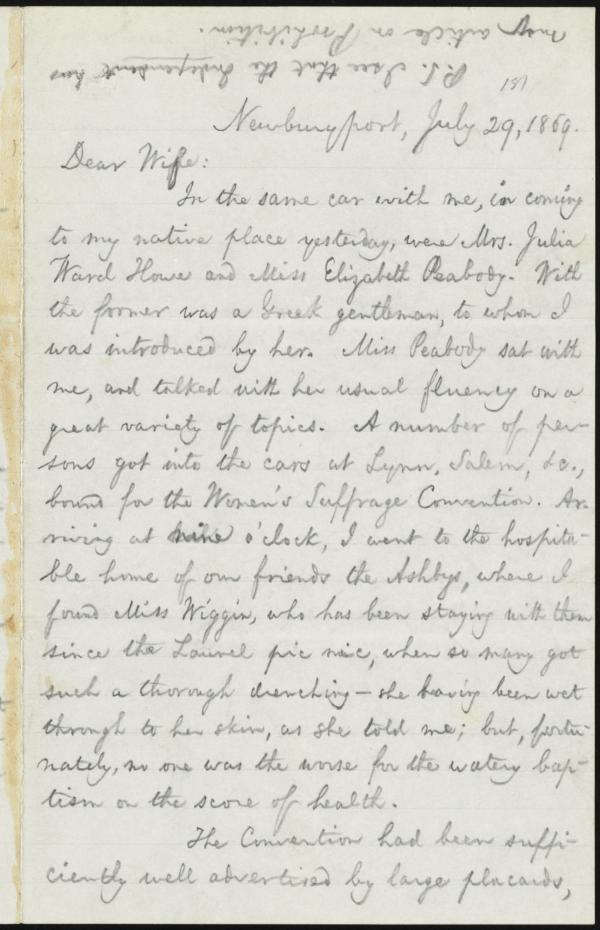 P.S. I see that the Independent has
my article on Prohibition.
181
Newburyport, July 29, 1869.
Dear Wife:
In the same car with me, in coming
to my native place yesterday, were Mrs. Julia
Ward Howe and Miss Elizabeth Peabody. With
the former was a Greek gentleman, to whom I
was introduced by her. Miss Peabody sat with
me, and talked with her usual fluency on a
great variety of topics. A number of per-
sons got into the cars at Lynn, Salem, &c.,
bound for the Women's Suffrage Convention. Ar-
riving at nine o'clock, I went to the hospita-
ble home of our friends the Ashbys, where I
found Miss Wiggin, who has been staying with them
since the Laurel pic nic, when so many got
such a thorough drenching — she having been wet
through to her skin, as she told me; but, fortu-
nately, no one was the worse for the watery bap-
tism on the score of health.
The Convention had been suffi-
ciently well advertised by large placards,